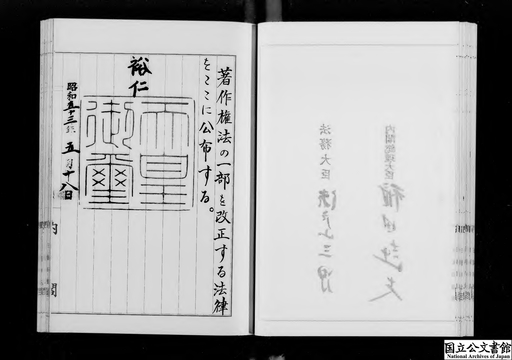 著作権法の一部を改正する法律
をここに公布する。
裕仁
天皇
御璽
昭和五十三年五月十八日
内閣
内閣総理大臣 福田赳夫
法務大臣 瀬戸山三男
国立公文書館
National Archives of Japan